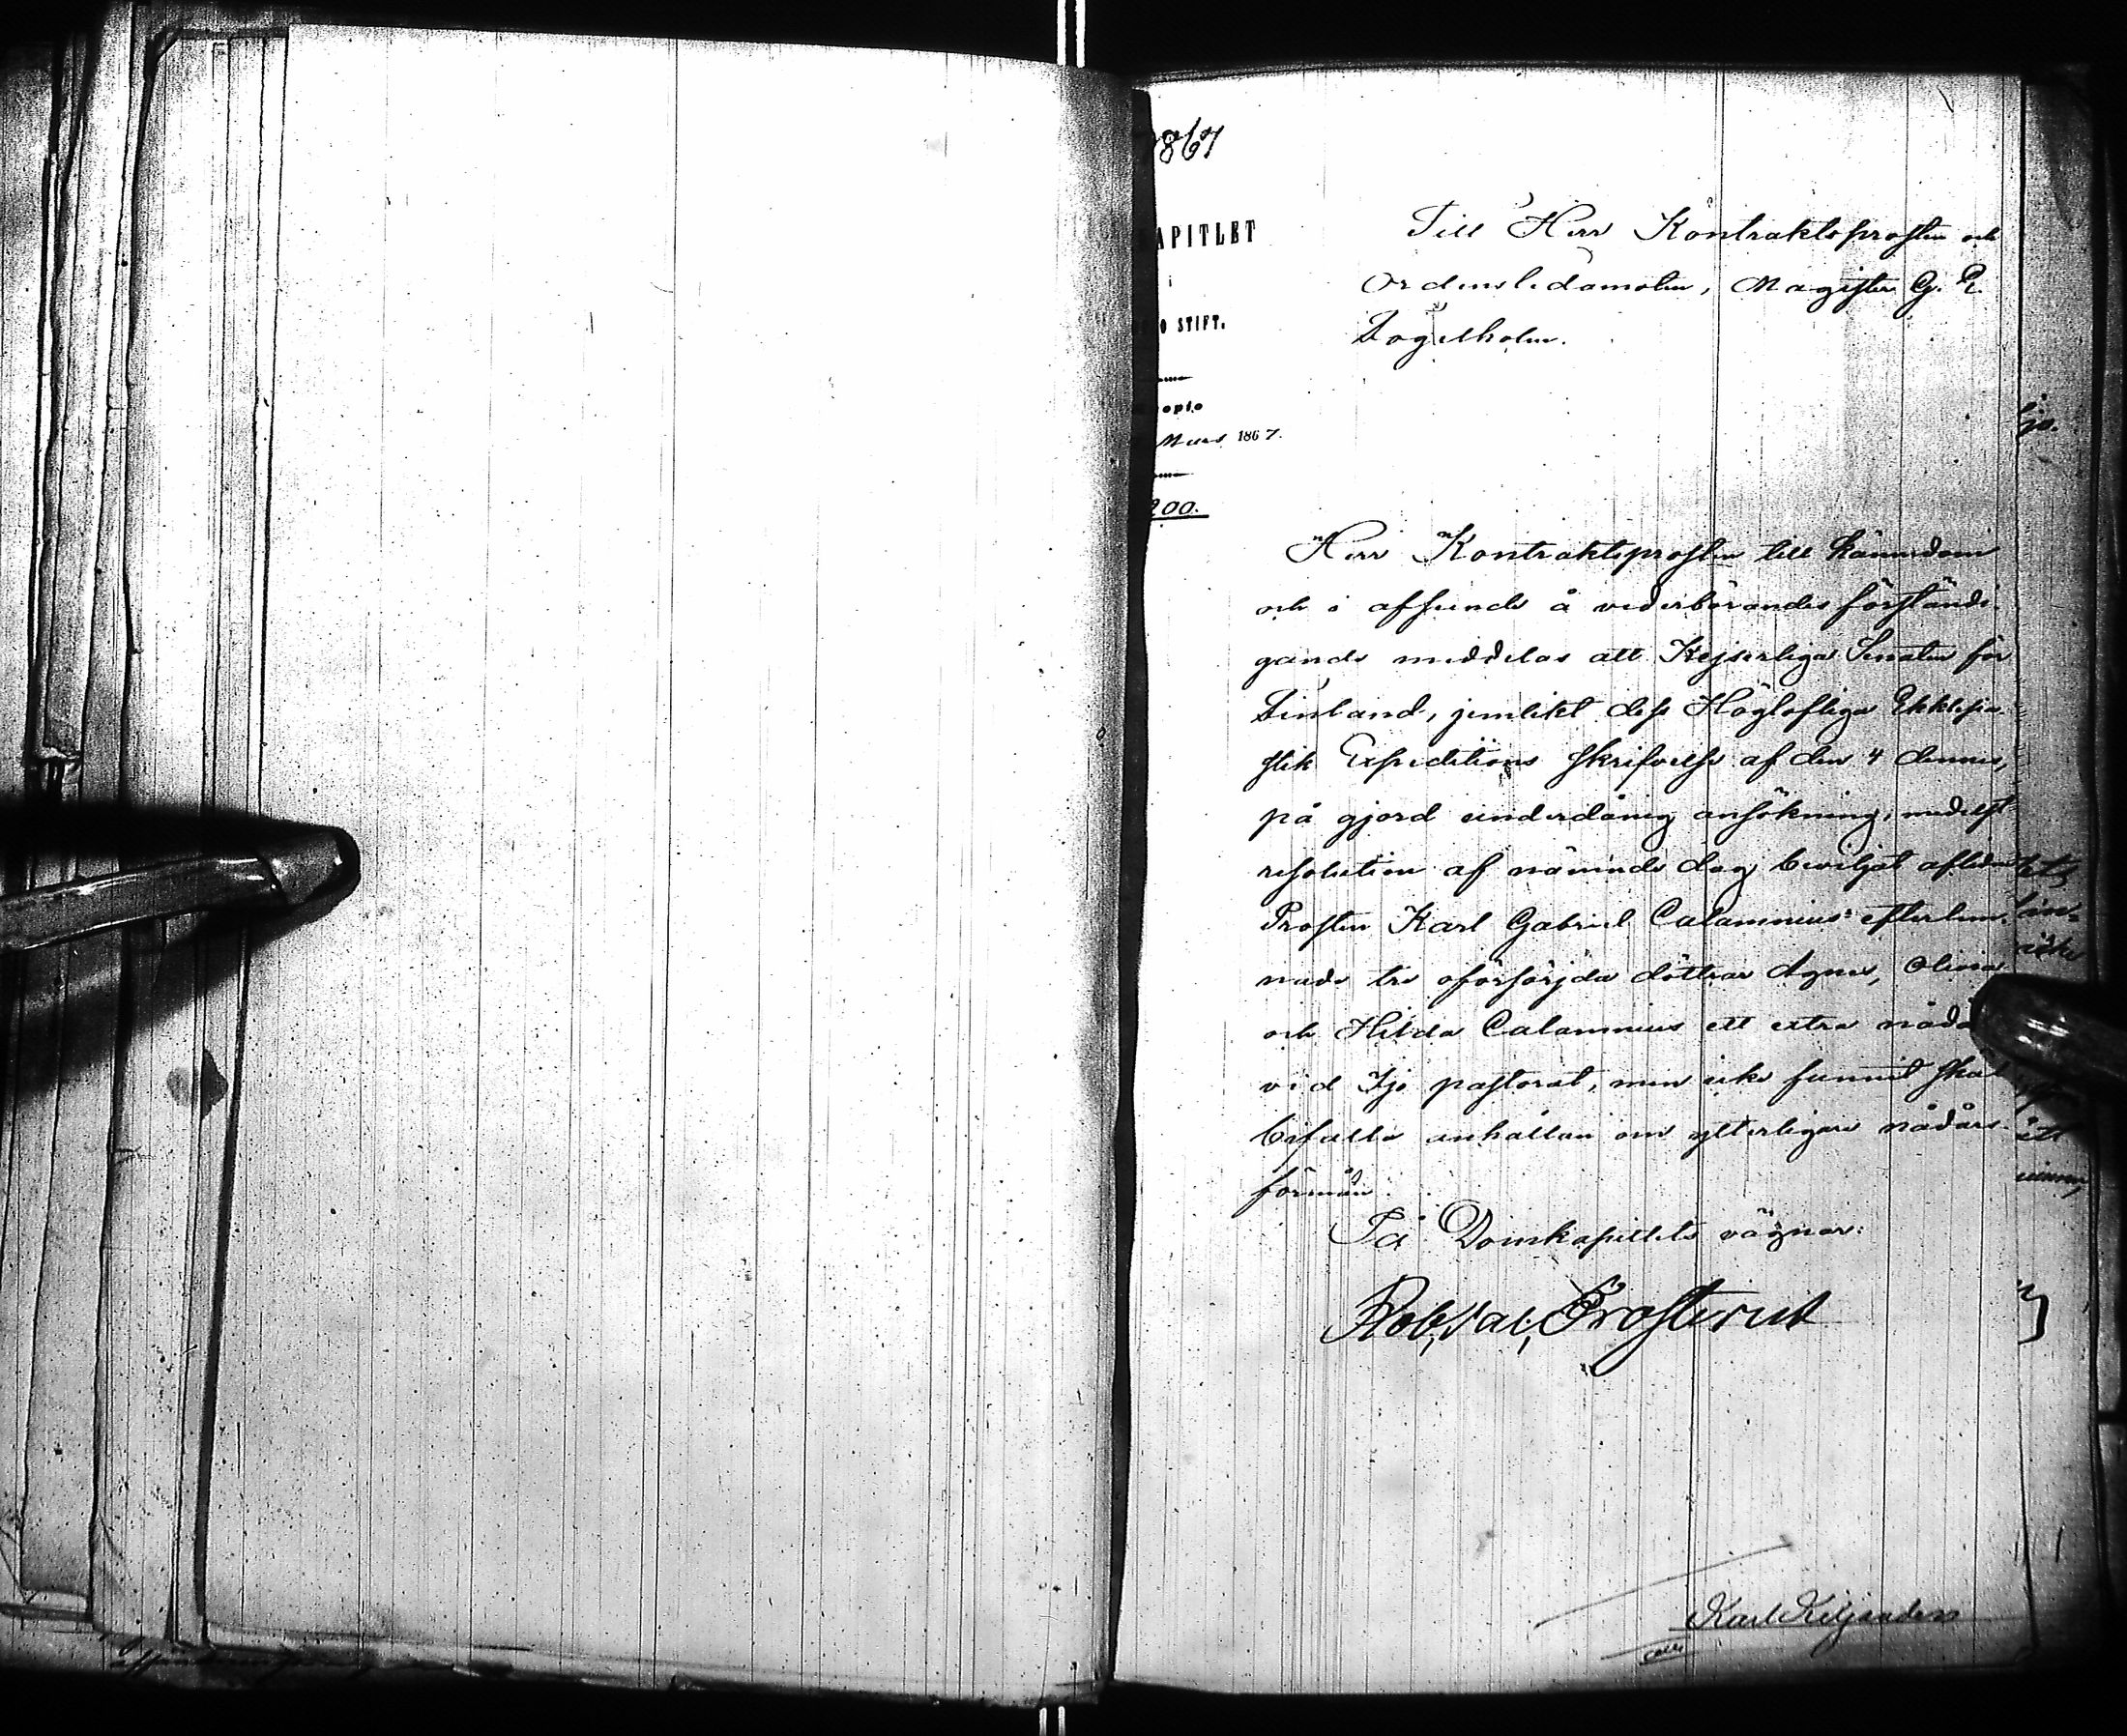 1867
APITLET
i
O STIFT.
opio
Mars 1867.
200.
Till Herr Kontraktsprosten och
Ordensledamoten, Magister G. E.
Fogelholm.
Herr Kontraktsprosten till kännedom
och i afseende å vederbörandes förständi-
gande meddelas att Kejserliga Senaten för
Finland, jemlikt dess Höglofliga Ekklesia-
stik Expeditions skrifvelse af den 4 dennes,
på gjord underdånig ansökning, medelst
resolution af nämnde dag beviljat aflidne
Prosten Karl Gabriel Calamnius' efterlem-
nade tre oförsörjda döttrar Agnes, Olivia
och Hilda Calamnius ett extra nådå
vid Ijo pastorat, men icke funnit skäl
bifalla anhållan om ytterligare nådårs-
förmån.
På Domkapitlets vägnar:
Rob. Val. Frosterus
Karl Kiljander